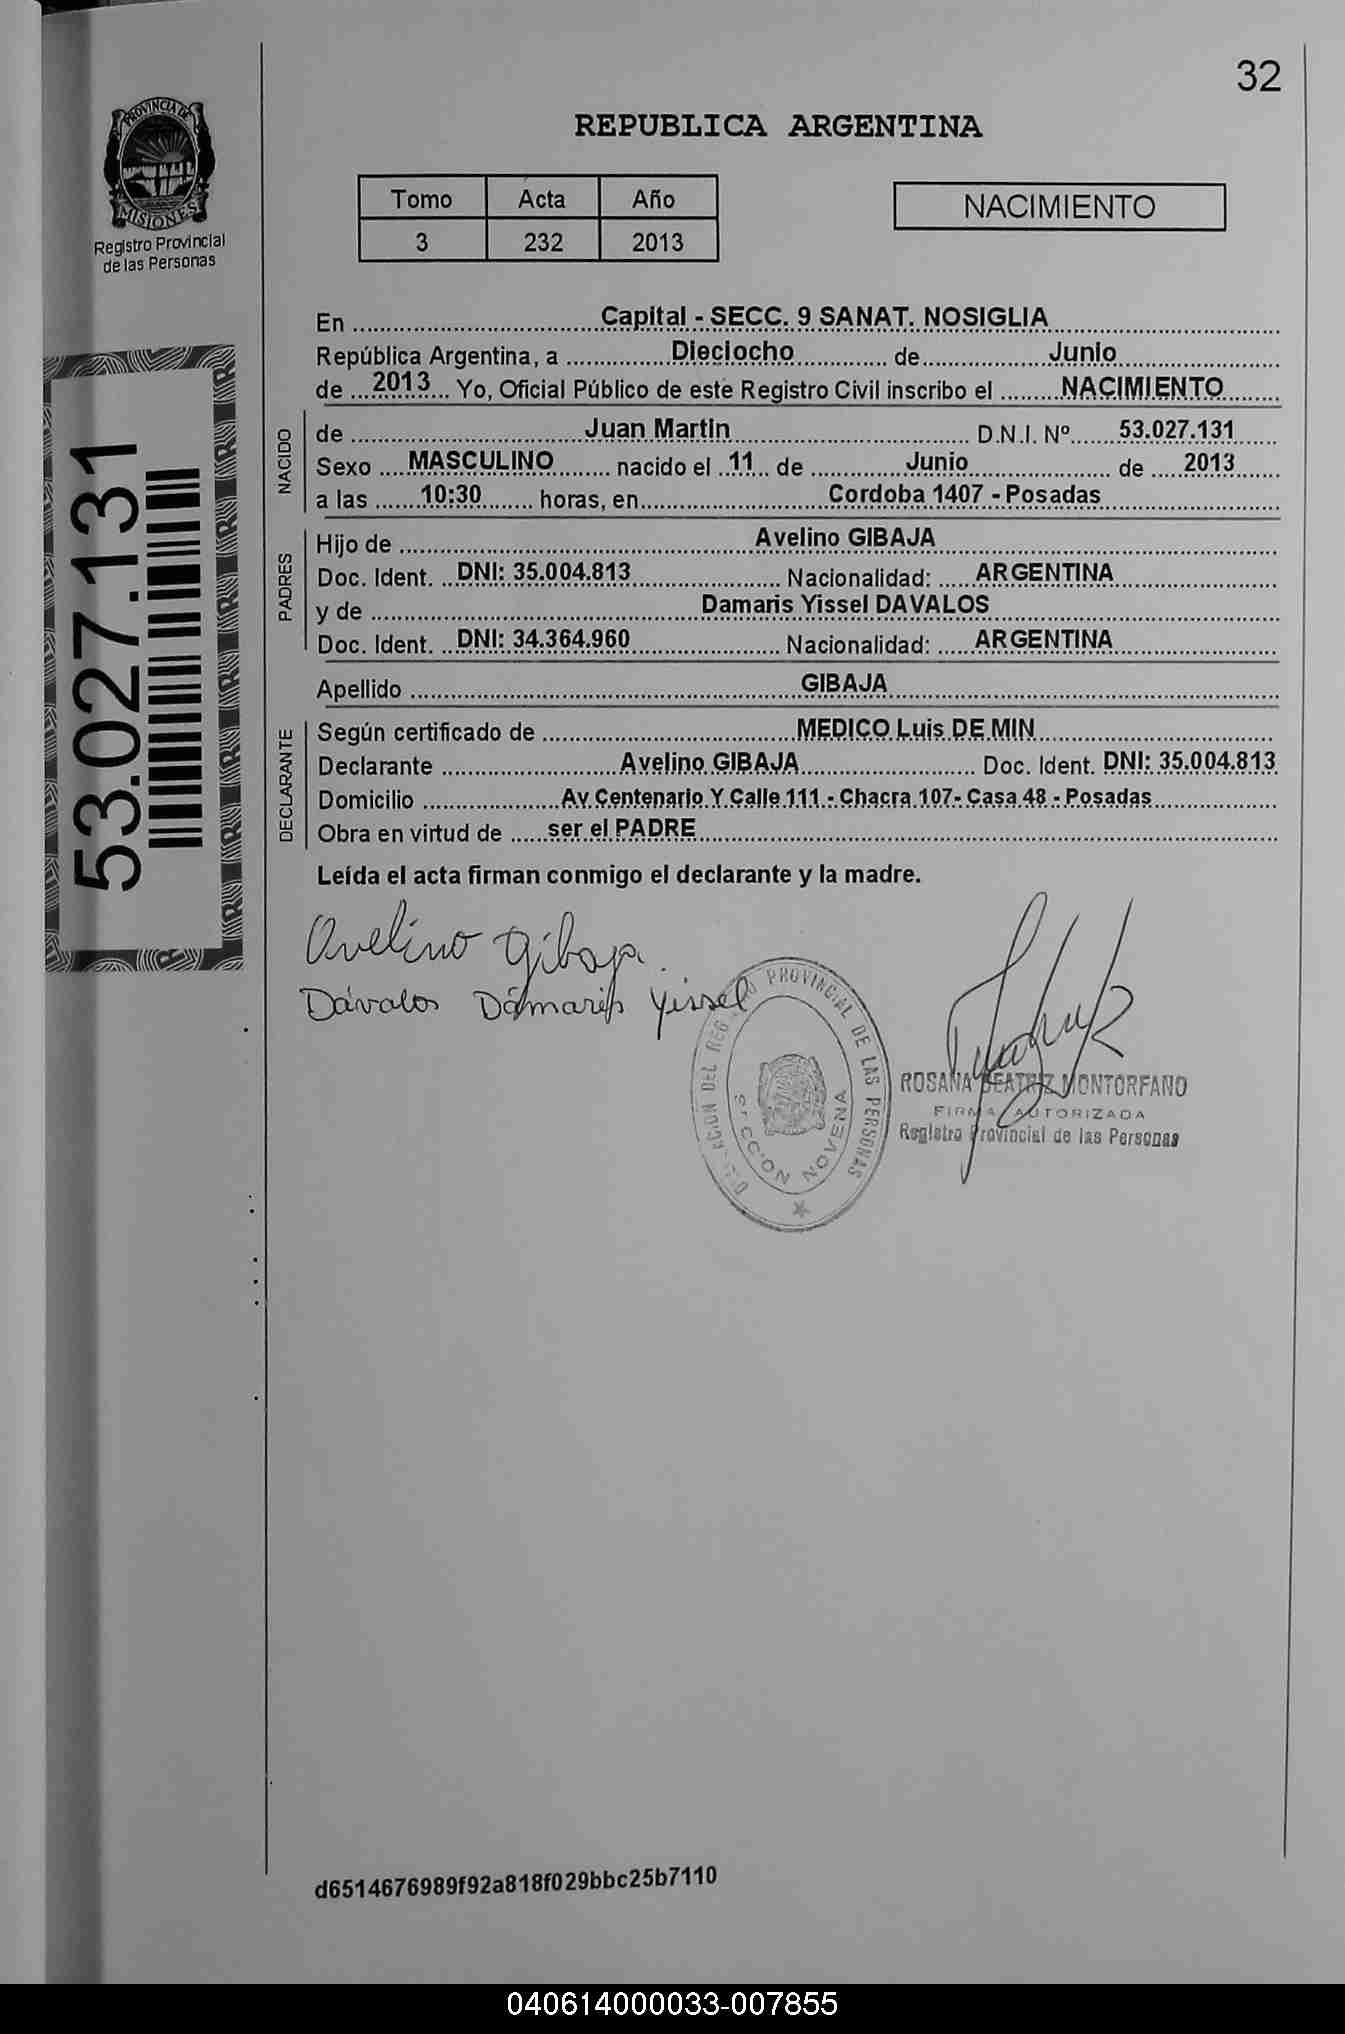 32
PROVINCIA DE
MISIONES
Registro Provincial
de las Personas
REPUBLICA ARGENTINA
Tomo Acta Año
3 232 2013
NACIMIENTO
53.027.131
En Capital - SECC. 9 SANAT. NOSIGLIA
República Argentina, a Dieciocho de Junio
de 2013 Yo, Oficial Público de este Registro Civil inscribo el NACIMIENTO
NACIDO
de Juan Martin D.N.I. Nº 53.027.131
Sexo MASCULINO nacido el 11 de Junio de 2013
a las 10:30 horas, en Cordoba 1407 - Posadas
PADRES
Hijo de Avelino GIBAJA
Doc. Ident. DNI: 35.004.813 Nacionalidad: ARGENTINA
y de Damaris Yissel DAVALOS
Doc. Ident. DNI: 34.364.960 Nacionalidad: ARGENTINA
Apellido GIBAJA
DECLARANTE
Según certificado de MEDICO Luis DE MIN
Declarante Avelino GIBAJA Doc. Ident. DNI: 35.004.813
Domicilio Av Centenario Y Calle 111 - Chacra 107- Casa 48 - Posadas
Obra en virtud de ser el PADRE
Leída el acta firman conmigo el declarante y la madre.
Avelino Gibaja
Dávalos Dámaris Yissel
PROVINCIAL DE LAS PERSONAS
SECCION NOVENA
ROSANA BEATRIZ MONTORFANO
FIRMA AUTORIZADA
Registro Provincial de las Personas
d6514676989f92a818f029bbc25b7110
040614000033-007855